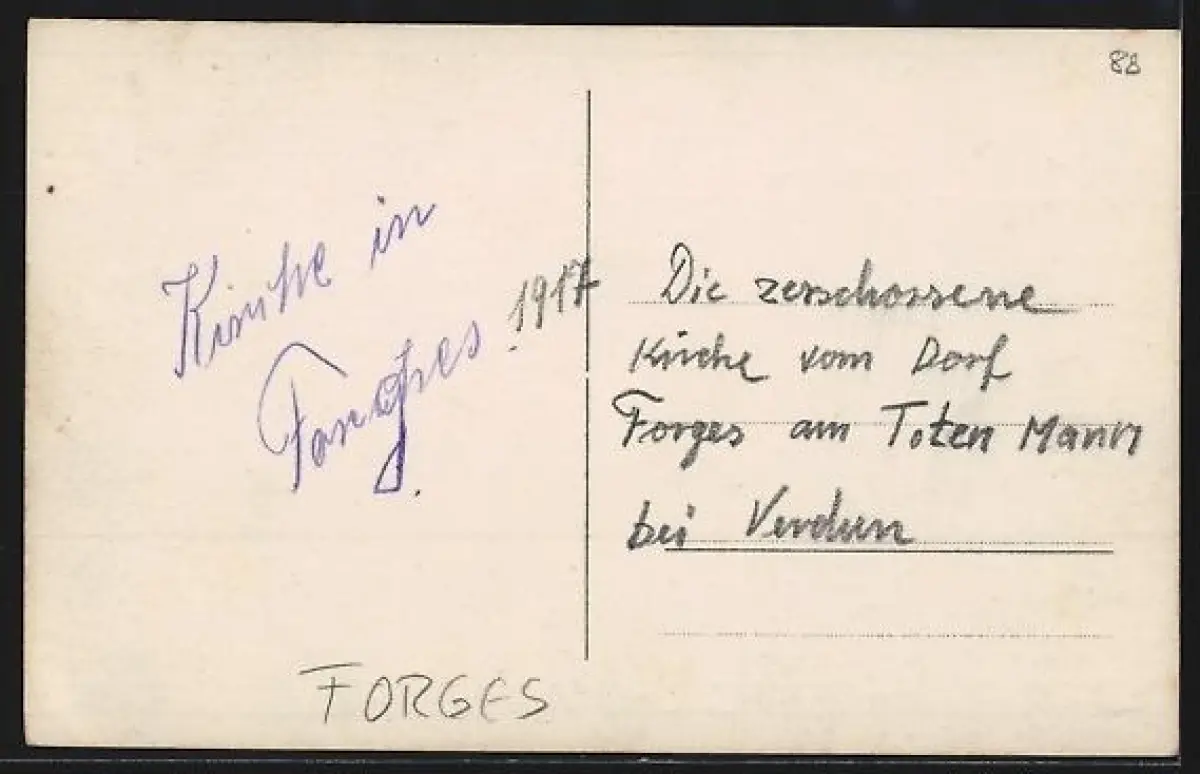 88
Kirche in
Forges.
1917
Die zerschossene
Kirche vom Dorf
Forges am Toten Mann
bei Verdun
FORGES